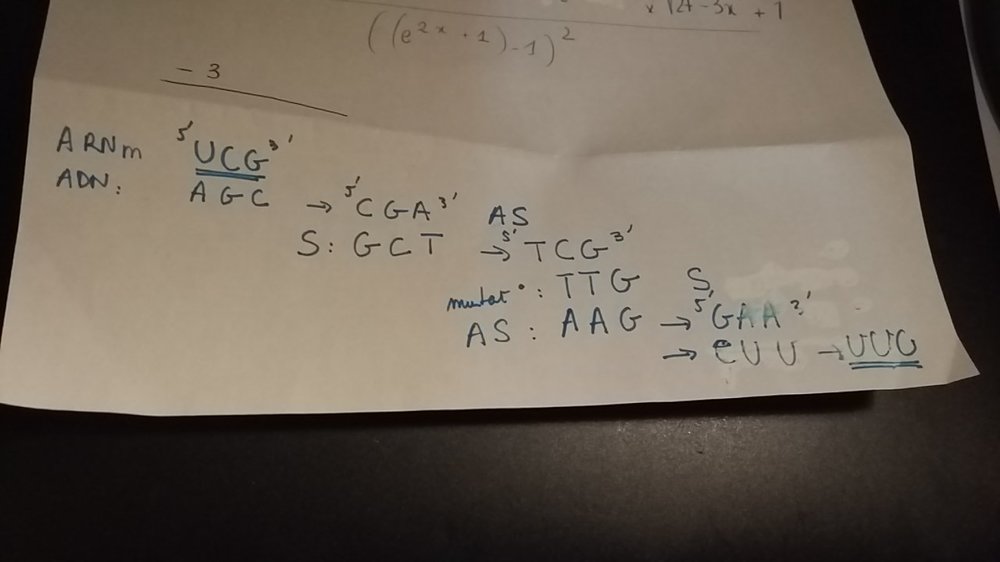 x √24 - 3x + 1
((e^2x + 1) - 1)^2
- 3
ARNm 5' UCG 3'
ADN: AGC → 5' CGA 3' AS
S: GCT → 5' TCG 3'
mutat°: TTG S
AS: AAG → 5' GAA 3'
→ CUU → UUC